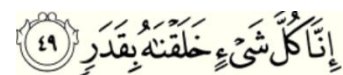 إِنَّا كُلَّ شَىْءٍ خَلَقْنَٰهُ بِقَدَرٍ ٤٩